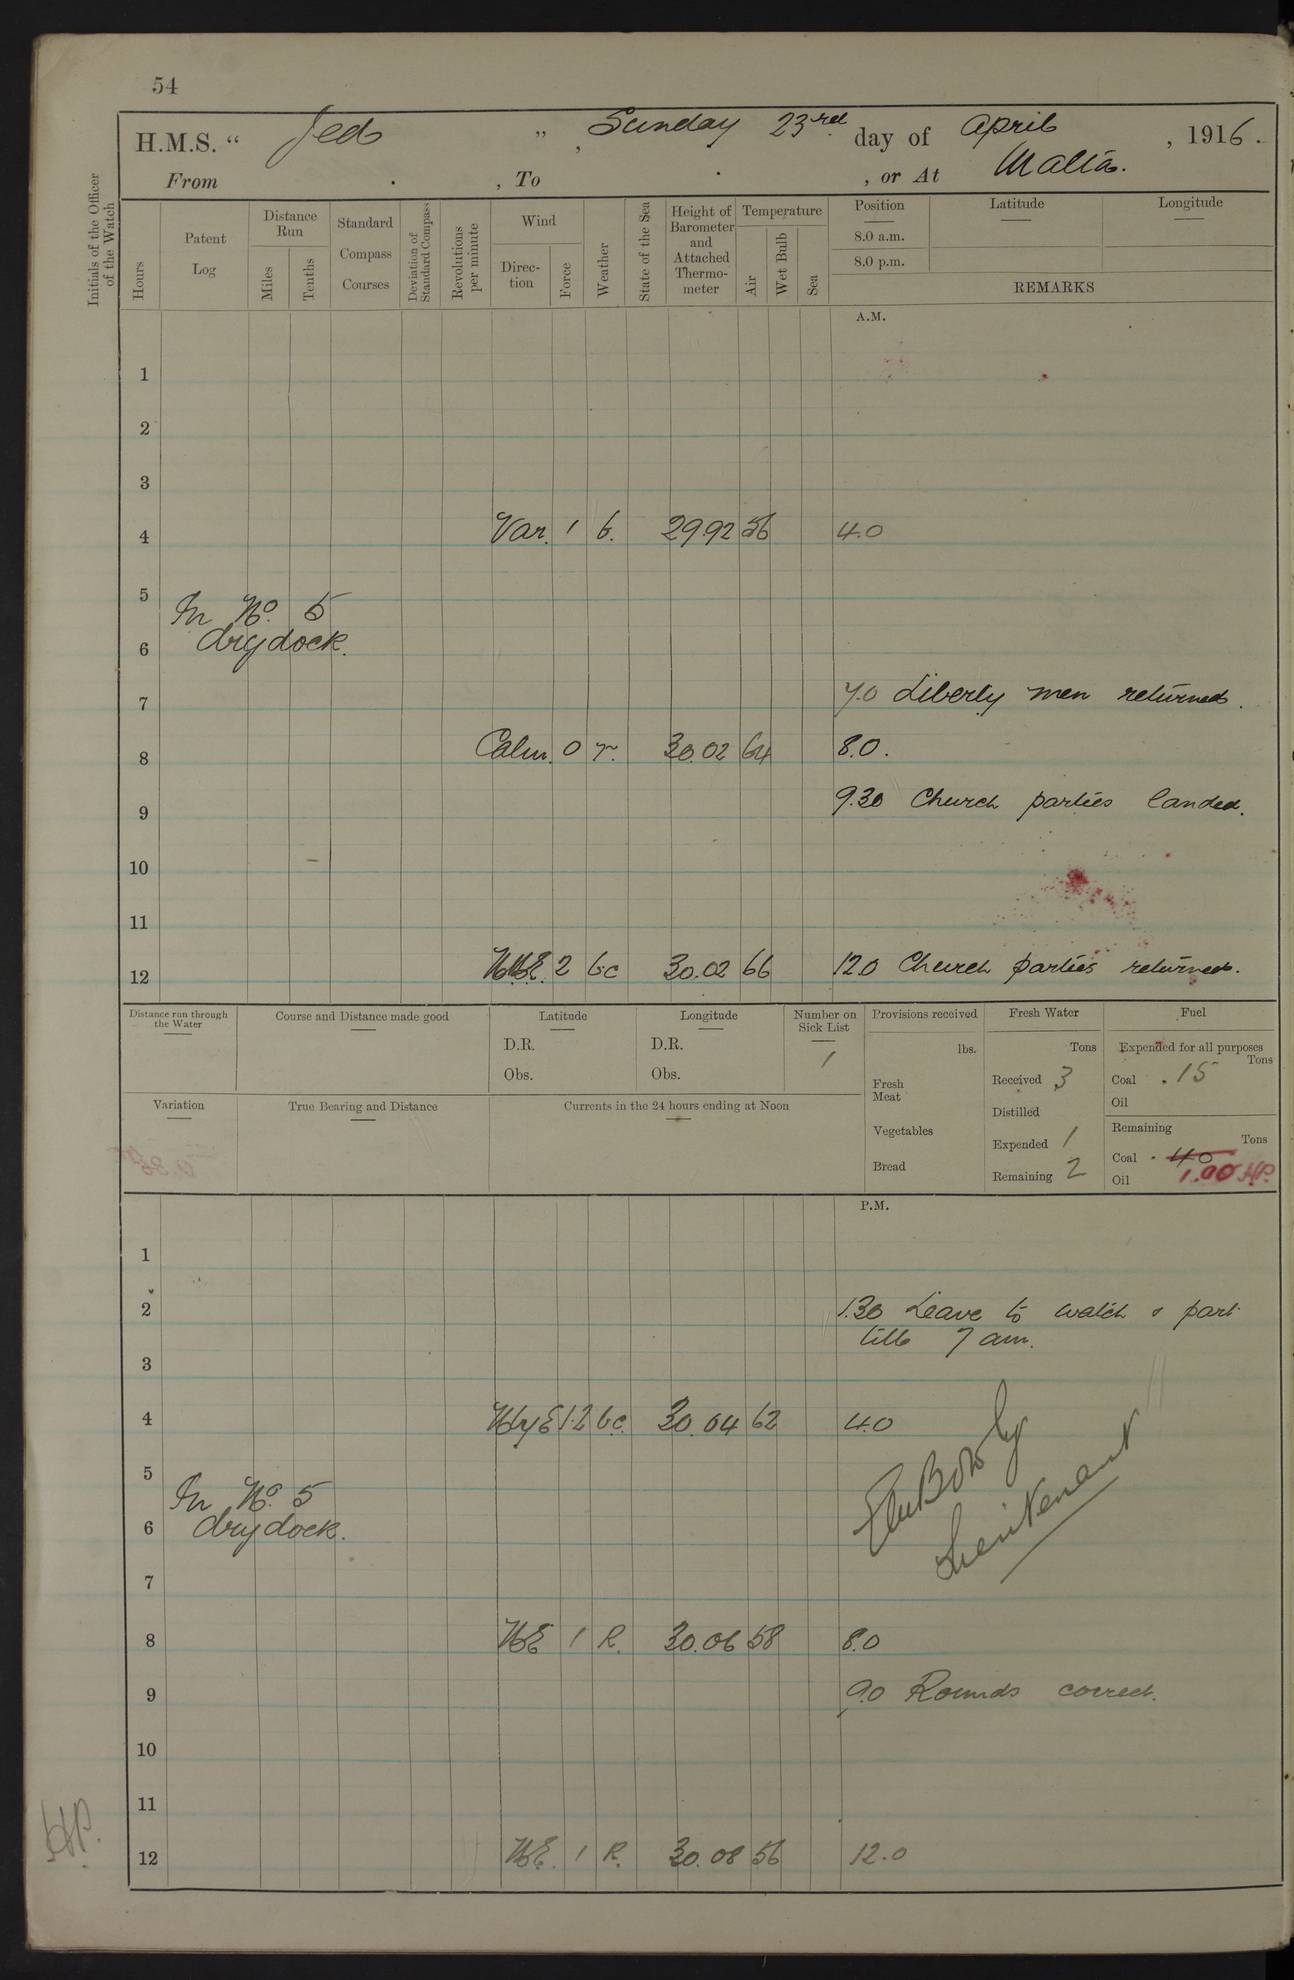 54
H.M.S. “ Jed ” , Sunday 23rd day of April , 1916.
From . , To . , or At Malta.
Initials of the Officer of the Watch
Hours
Patent Log
Distance Run
Miles
Tenths
Standard Compass Courses
Deviation of Standard Compass
Revolutions per minute
Wind
Direction
Force
Weather
State of the Sea
Height of Barometer and Attached Thermometer
Temperature
Air
Wet Bulb
Sea
Position Latitude Longitude
8.0 a.m.
8.0 p.m.
REMARKS
A.M.
1
2
3
4 Var. 1 b. 29.92 56 4.0
5 In No. 5
6 dry dock.
7 7.0 Liberty men returned.
8 Calm. 0 r. 30.02 64 8.0.
9 9.30 Church parties landed.
10
11
12 NNE. 2 bc 30.02 66 12.0 Church parties returned.
Distance run through the Water
Course and Distance made good
Latitude
D.R.
Obs.
Longitude
D.R.
Obs.
Number on Sick List
1
Provisions received
lbs.
Fresh Meat
Vegetables
Bread
Fresh Water
Tons
Received 3
Distilled
Expended 1
Remaining 2
Fuel
Expended for all purposes
Tons
Coal .15
Oil
Remaining
Tons
Coal . 40
1.00 HP.
Oil
Variation
True Bearing and Distance
Currents in the 24 hours ending at Noon
P.M.
1
2 1.30 Leave to watch & part
till 7 am.
3
4 NbyE 1.2 bc. 30.04 62 4.0
5 In No. 5
6 dry dock.
Lieutenant
7
8 NE 1 R. 30.06 58 8.0
9 9.0 Rounds correct.
10
11
HP.
12 NE. 1 R. 30.08 56 12.0